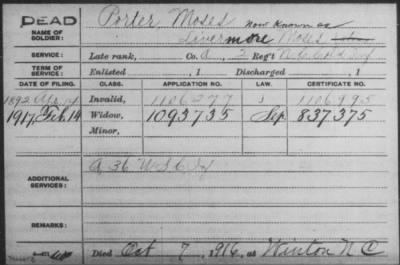 DEAD
NAME OF SOLDIER:
Porter, Moses now known as
Livermore Moses
SERVICE: Late rank, Co. A, 2 Reg't N.C. Col'd Inf
TERM OF SERVICE: Enlisted , 1 Discharged , 1
DATE OF FILING. CLASS. APPLICATION NO. LAW. CERTIFICATE NO.
1892 Apr 14 Invalid, 1106277 1106995
1917 Feb 14 Widow, 1093735 Sep 837375
Minor,
ADDITIONAL SERVICES: A 36 U S C Inf
REMARKS:
Died Oct 7, 1916, at Winton N C